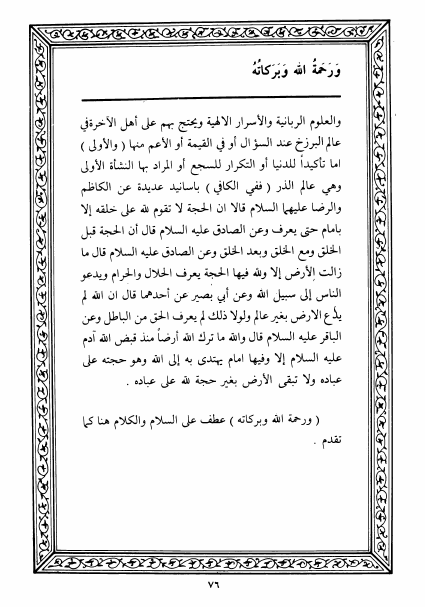 وَرَحْمَةُ الله وَبَرَكاتُهُ
والعلوم الربانية والأسرار الالهية ويحتج بهم على أهل الآخرة في
عالم البرزخ عند السؤال أو في القيمة أو الأعم منها ( والأولى )
اما تأكيداً للدنيا أو التكرار للسجع أو المراد بها النشأة الأولى
وهي عالم الذر ( ففي الكافي ) باسانيد عديدة عن الكاظم
والرضا عليهما السلام قالا ان الحجة لا تقوم لله على خلقه إلا
بامام حتى يعرف وعن الصادق عليه السلام قال أن الحجة قبل
الخلق ومع الخلق وبعد الخلق وعن الصادق عليه السلام قال ما
زالت الأرض إلا ولله فيها الحجة يعرف الحلال والحرام ويدعو
الناس إلى سبيل الله وعن أبي بصير عن أحدهما قال ان الله لم
يدع الارض بغير عالم ولولا ذلك لم يعرف الحق من الباطل وعن
الباقر عليه السلام قال والله ما ترك الله أرضاً منذ قبض الله آدم
عليه السلام إلا وفيها امام يهتدى به إلى الله وهو حجته على
عباده ولا تبقى الأرض بغير حجة لله على عباده .
( ورحمة الله وبركاته ) عطف على السلام والكلام هنا كما
تقدم .
٧٦